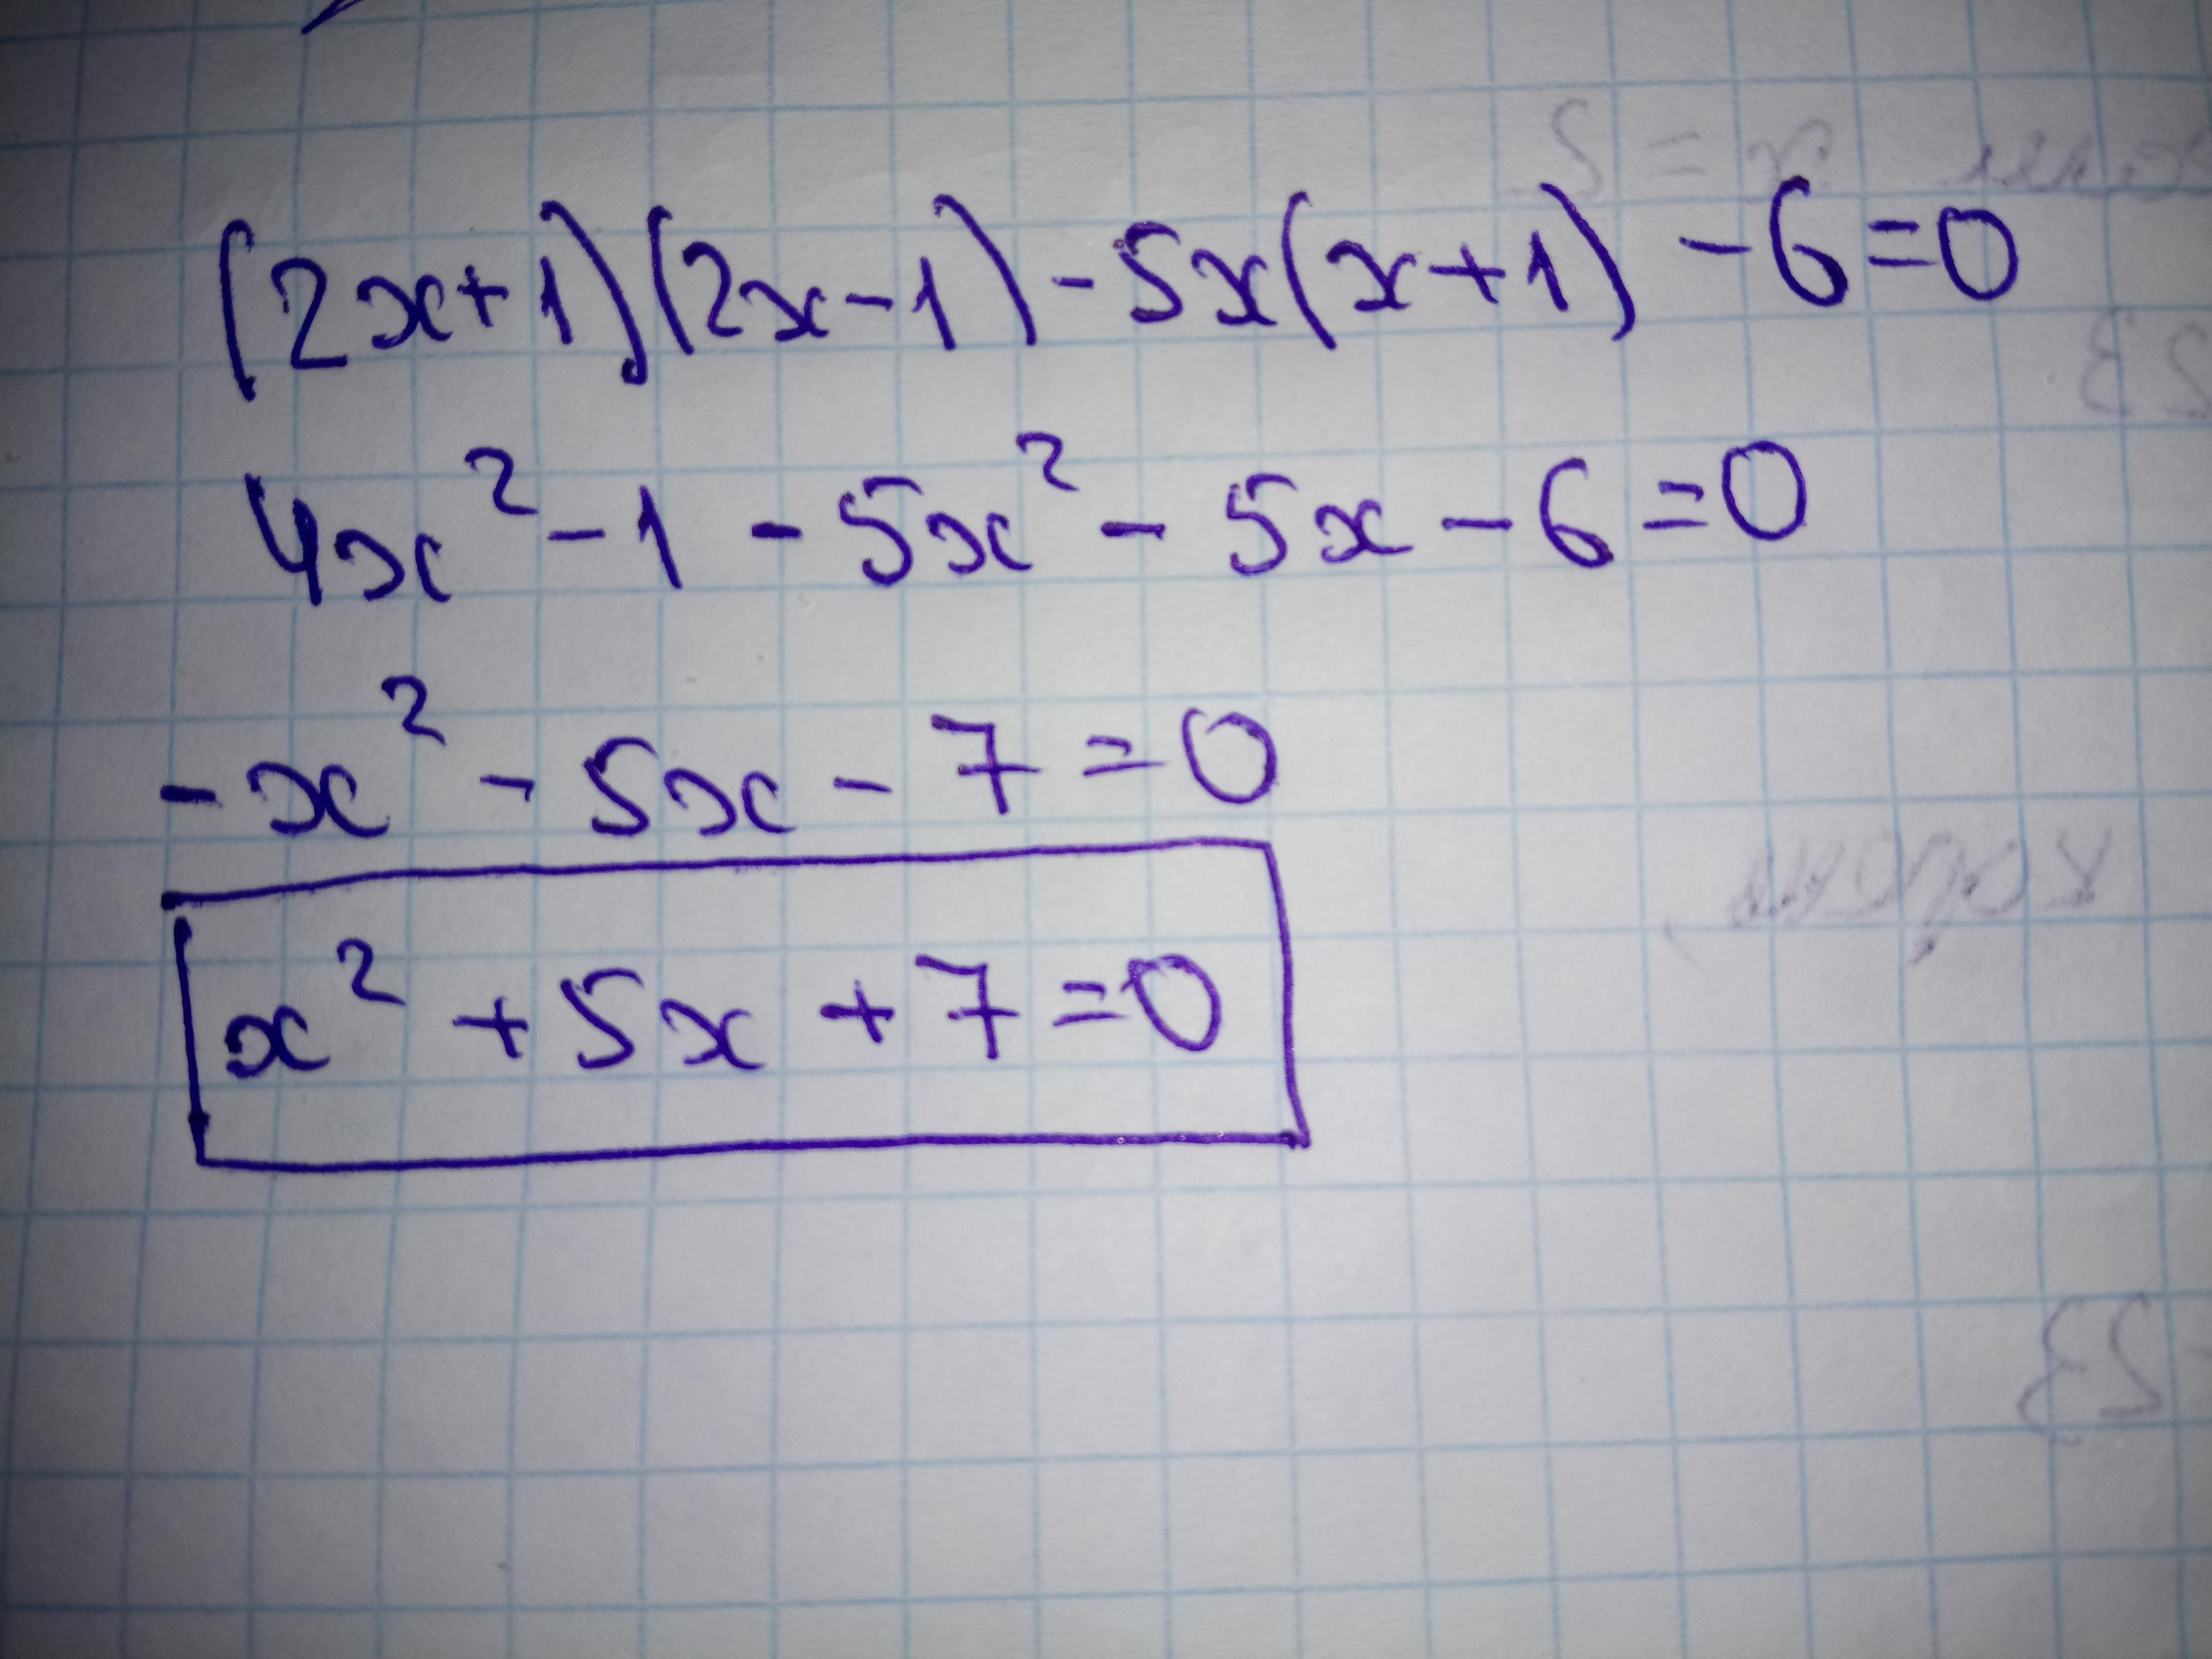 (2x+1)(2x-1)-5x(x+1)-6=0
4x²-1-5x²-5x-6=0
-x²-5x-7=0
x²+5x+7=0